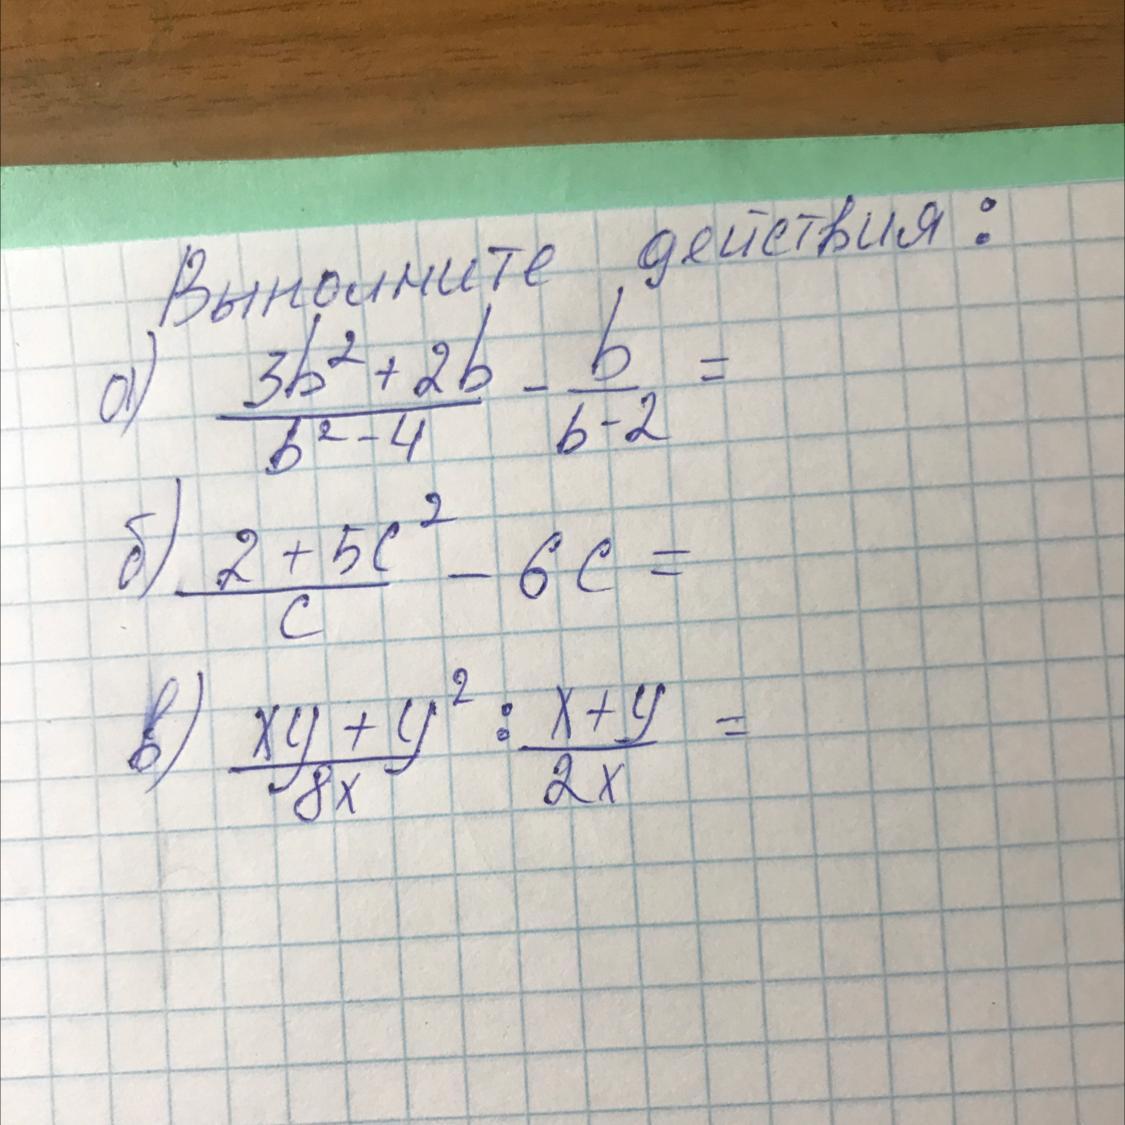 Выполните действия:
а) (3b² + 2b)/(b² - 4) - b/(b - 2) =
б) (2 + 5c²)/c - 6c =
в) (xy + y²)/(8x) : (x + y)/(2x) =